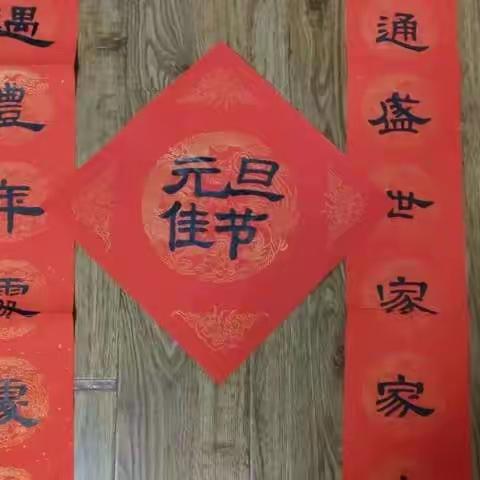 通盛世家家
元旦
佳节
遇豐年